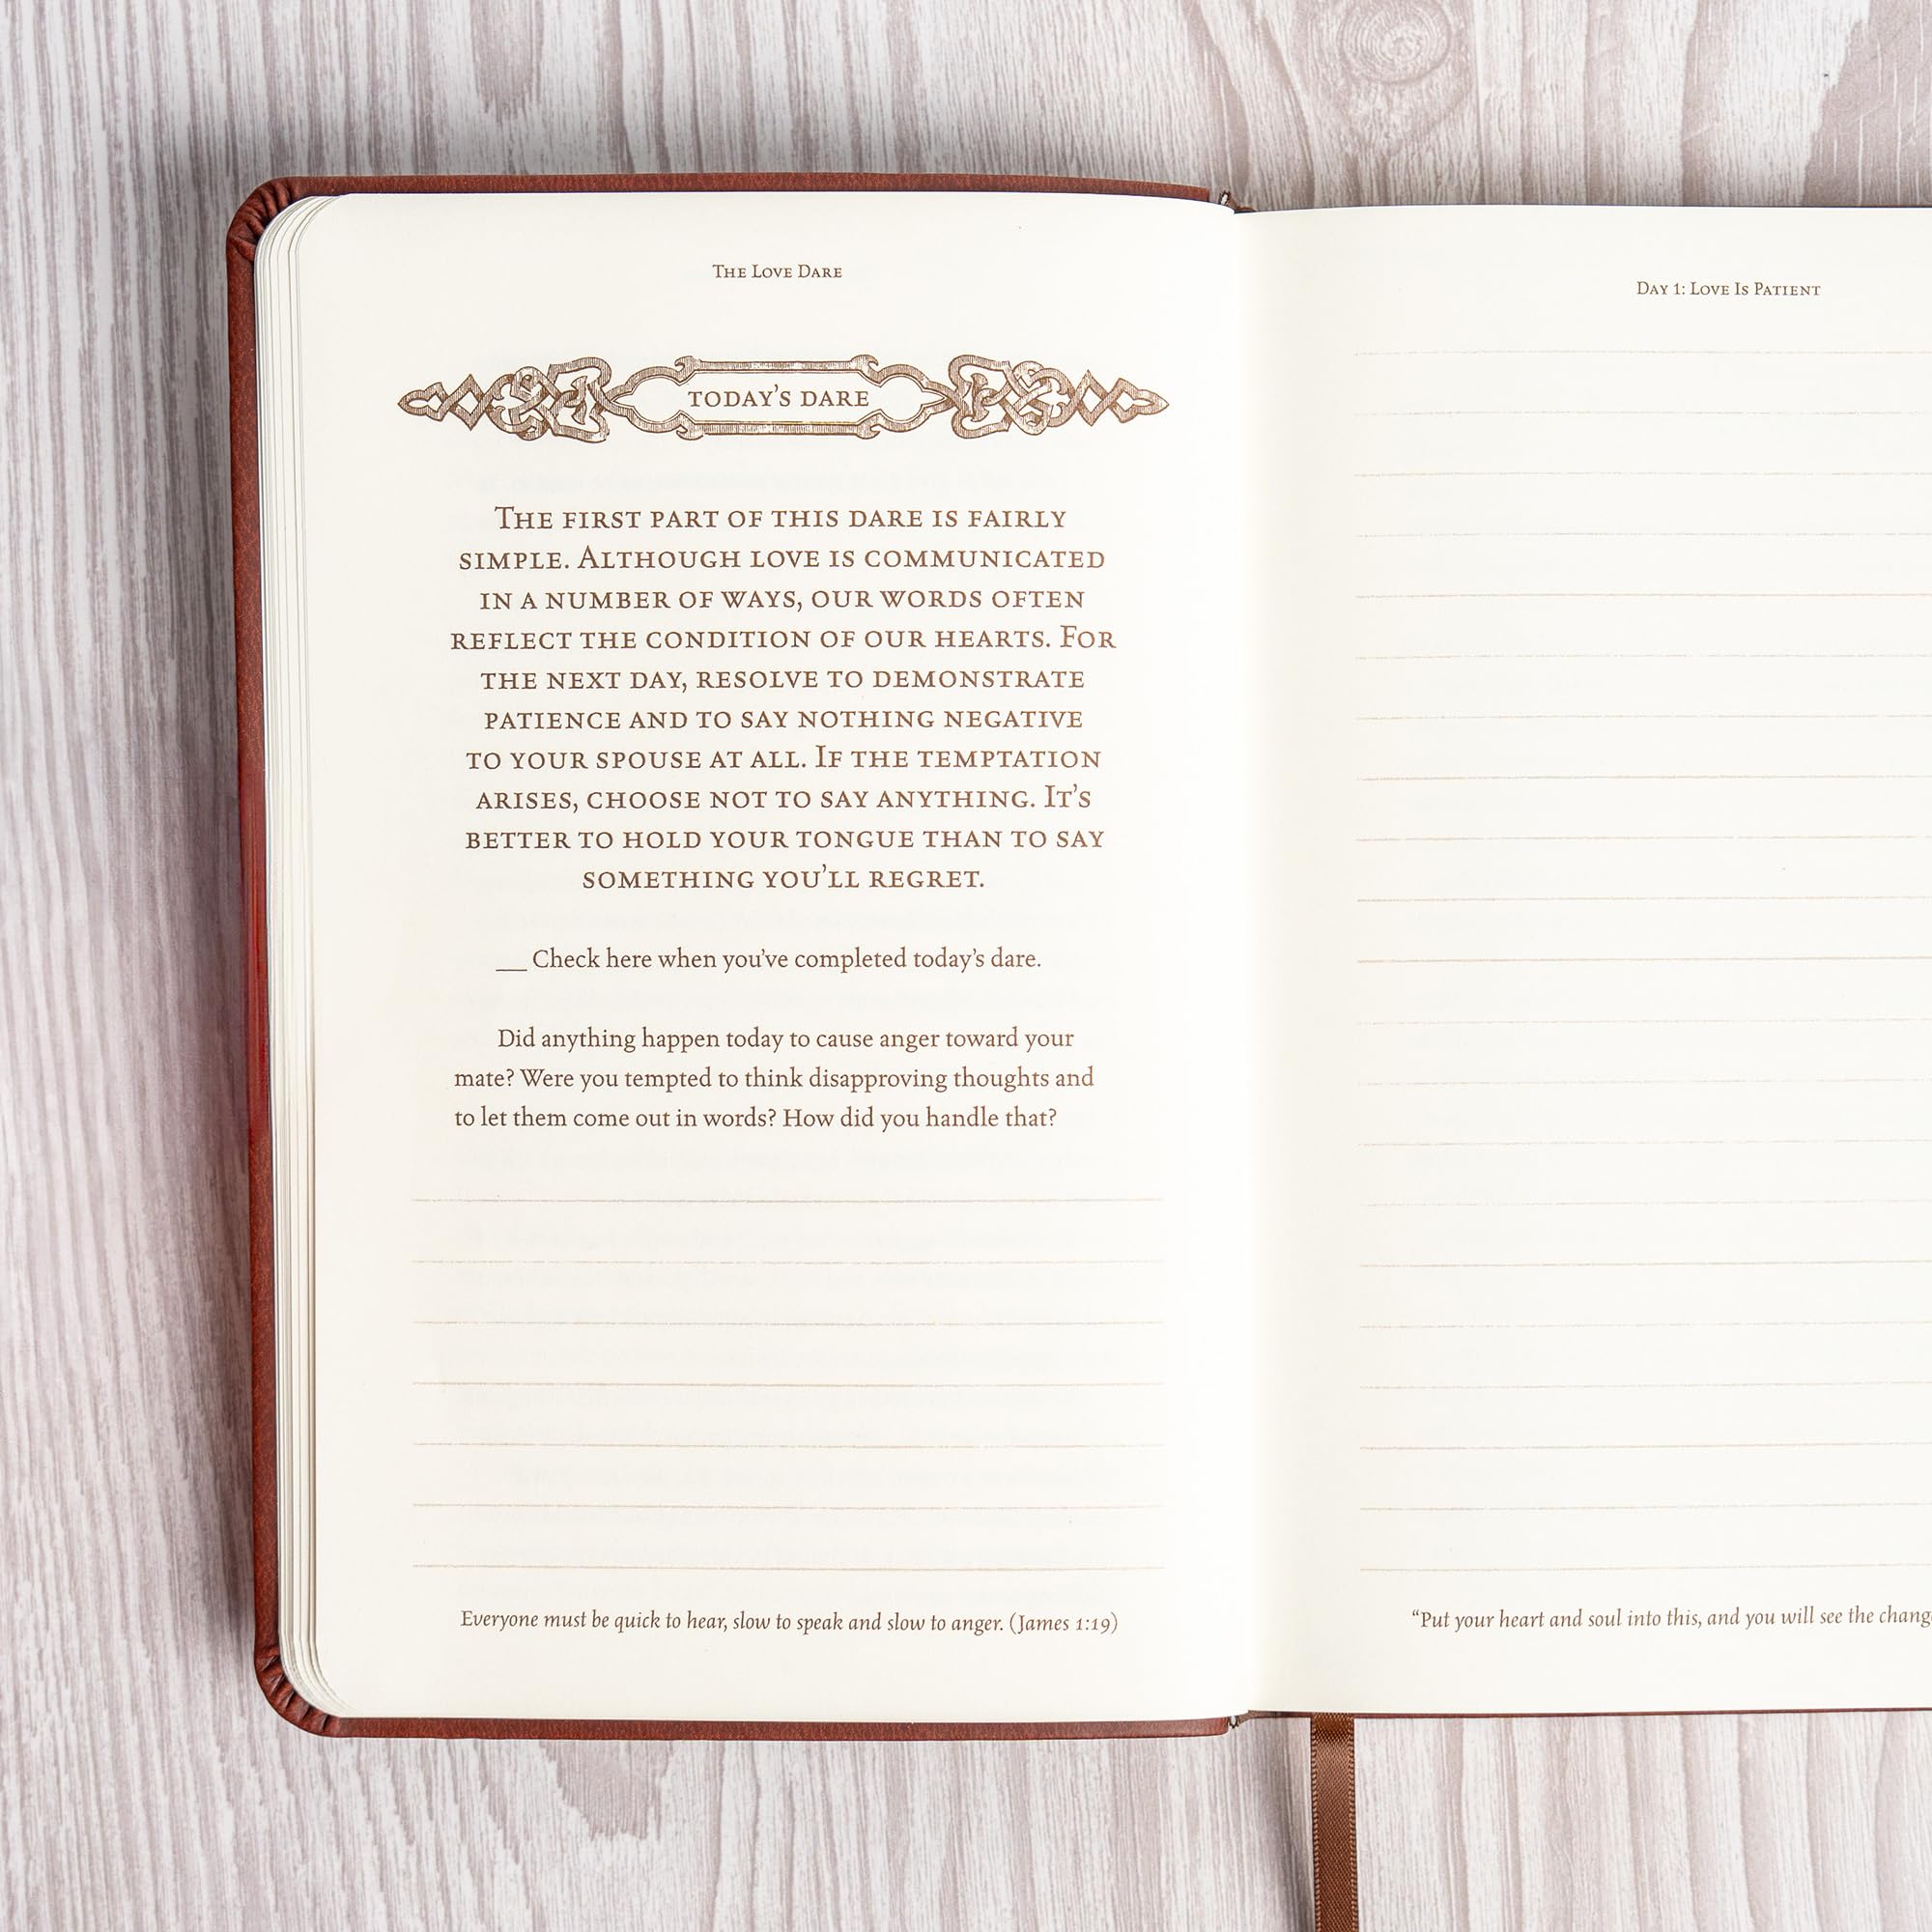 The Love Dare
TODAY'S DARE
The first part of this dare is fairly
simple. Although love is communicated
in a number of ways, our words often
reflect the condition of our hearts. For
the next day, resolve to demonstrate
patience and to say nothing negative
to your spouse at all. If the temptation
arises, choose not to say anything. It's
better to hold your tongue than to say
something you'll regret.
__ Check here when you've completed today's dare.
Did anything happen today to cause anger toward your
mate? Were you tempted to think disapproving thoughts and
to let them come out in words? How did you handle that?
Everyone must be quick to hear, slow to speak and slow to anger. (James 1:19)
Day 1: Love Is Patient
“Put your heart and soul into this, and you will see the